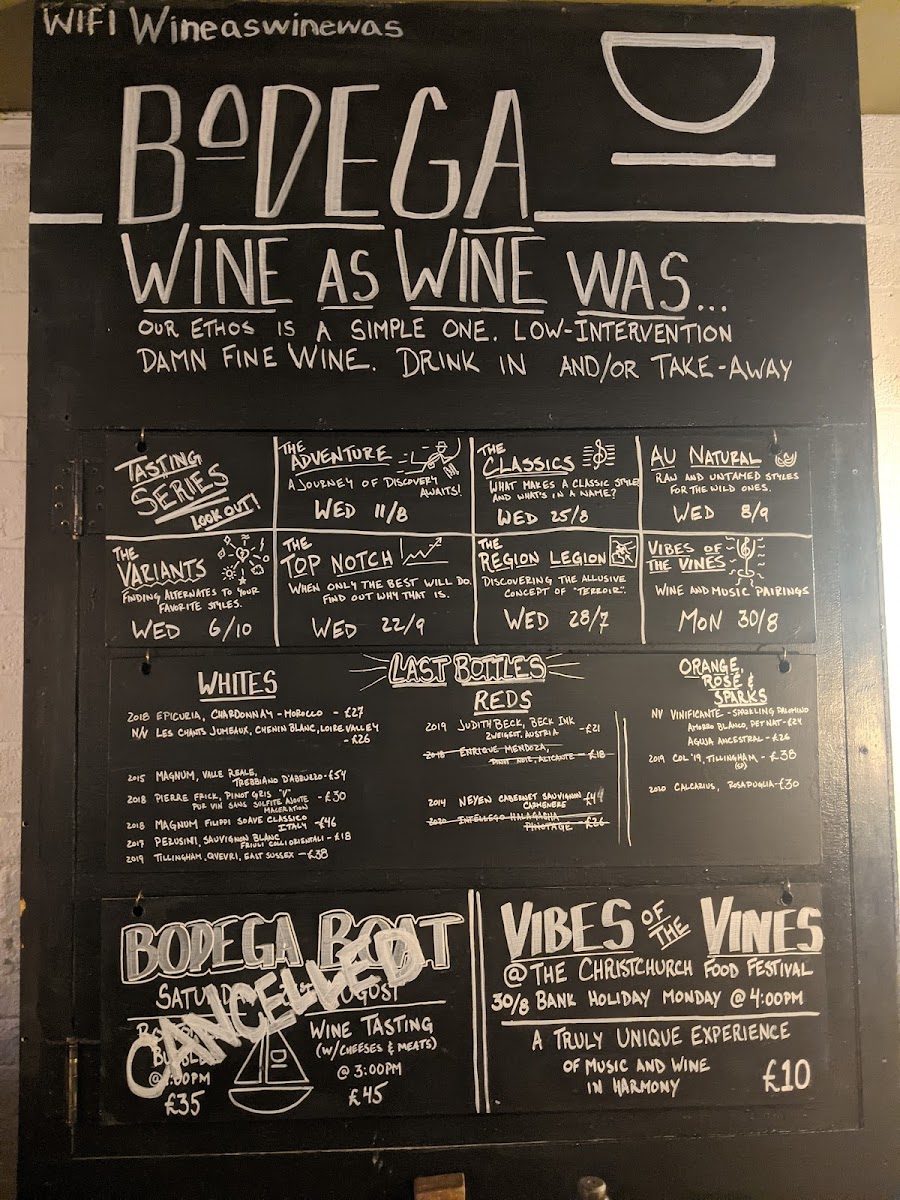 WIFI Wineaswinewas
BODEGA
WINE AS WINE WAS...
OUR ETHOS IS A SIMPLE ONE. LOW-INTERVENTION
DAMN FINE WINE. DRINK IN AND/OR TAKE-AWAY
TASTING
SERIES
LOOK OUT!
THE
ADVENTURE
A JOURNEY OF DISCOVERY
AWAITS!
WED 11/8
THE
CLASSICS
WHAT MAKES A CLASSIC STYLE
AND WHAT'S IN A NAME?
WED 25/8
AU NATURAL
RAW AND UNTAMED STYLES
FOR THE WILD ONES.
WED 8/9
THE
VARIANTS
FINDING ALTERNATES TO YOUR
FAVORITE STYLES.
WED 6/10
THE
TOP NOTCH
WHEN ONLY THE BEST WILL DO.
FIND OUT WHY THAT IS.
WED 22/9
THE
REGION LEGION
DISCOVERING THE ALLUSIVE
CONCEPT OF "TERROIR".
WED 28/7
VIBES OF
THE VINES
WINE AND MUSIC PAIRINGS
MON 30/8
LAST BOTTLES
WHITES
2018 EPICURIA, CHARDONNAY - MOROCCO - £27
N/V LES CHANTS JUMEAUX, CHENIN BLANC, LOIRE VALLEY
- £26
2015 MAGNUM, VALLE REALE,
TREBBIANO D'ABRUZZO - £54
2018 PIERRE FRICK, PINOT GRIS "V" - £30
PUR VIN SANS SULFITE AJOUTE
MACERATION
2018 MAGNUM FILIPPI SOAVE CLASSICO
ITALY - £46
2017 PERUSINI, SAUVIGNON BLANC
FRIULI COLLI ORIENTALI - £18
2019 TILLINGHAM, QVEVRI, EAST SUSSEX - £38
REDS
2019 JUDITH BECK, BECK INK - £21
ZWEIGELT, AUSTRIA
2018 ENRIQUE MENDOZA,
PINOT NOIR, ALICANTE - £18
2014 NEYEN CABERNET SAUVIGNON £44
CARMENERE
2020 INTELLEGO HALAGASHA
PINOTAGE - £26
ORANGE,
ROSÉ &
SPARKS
NV VINIFICANTE - SPARKLING PALOMINO
AMORRO BLANCO, PET NAT - £24
AGUJA ANCESTRAL - £26
2019 COL '19, TILLINGHAM - £38
2020 CALCARIUS, ROSAPUGLIA - £30
BODEGA BOAT
CANCELLED
WINE TASTING
(W/CHEESES & MEATS)
@ 3:00PM
£45
£35
VIBES OF THE VINES
@ THE CHRISTCHURCH FOOD FESTIVAL
30/8 BANK HOLIDAY MONDAY @ 4:00PM
A TRULY UNIQUE EXPERIENCE
OF MUSIC AND WINE
IN HARMONY
£10